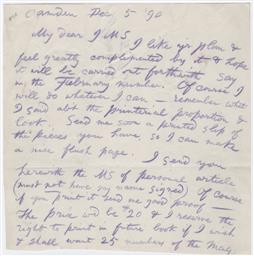 Camden Dec 5 '90
My dear J M S
I like y'r plan &
feel greatly complimented by it, & hope
it will be carried out forthwith say
in the February number. Of course I
will do whatever I can — remember what
I said abt the printerial proportion &
look. Send me soon a printed slip of
the pieces you have, so I can make
a nice flush page.
I send you
herewith the MS of personal article
(must not have my name signed) Of course
if you print it send me good proofs —
The price wd be $20 & I reserve the
right to print in future book if I wish
& shall want 25 numbers of the Mag.